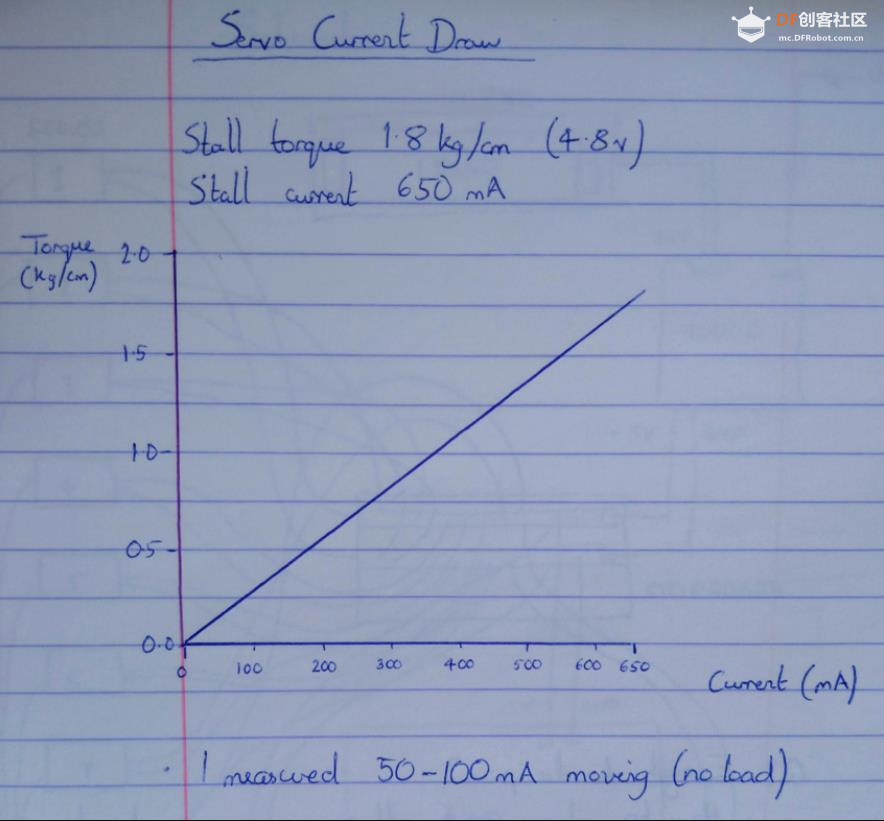 DF创客社区
mc.DFRobot.com.cn
Servo Current Draw
Stall torque 1.8 kg/cm (4.8v)
Stall current 650 mA
Torque
(kg/cm)
2.0
1.5
1.0
0.5
0.0
0 100 200 300 400 500 600 650
Current (mA)
· I measured 50-100mA moving (no load)